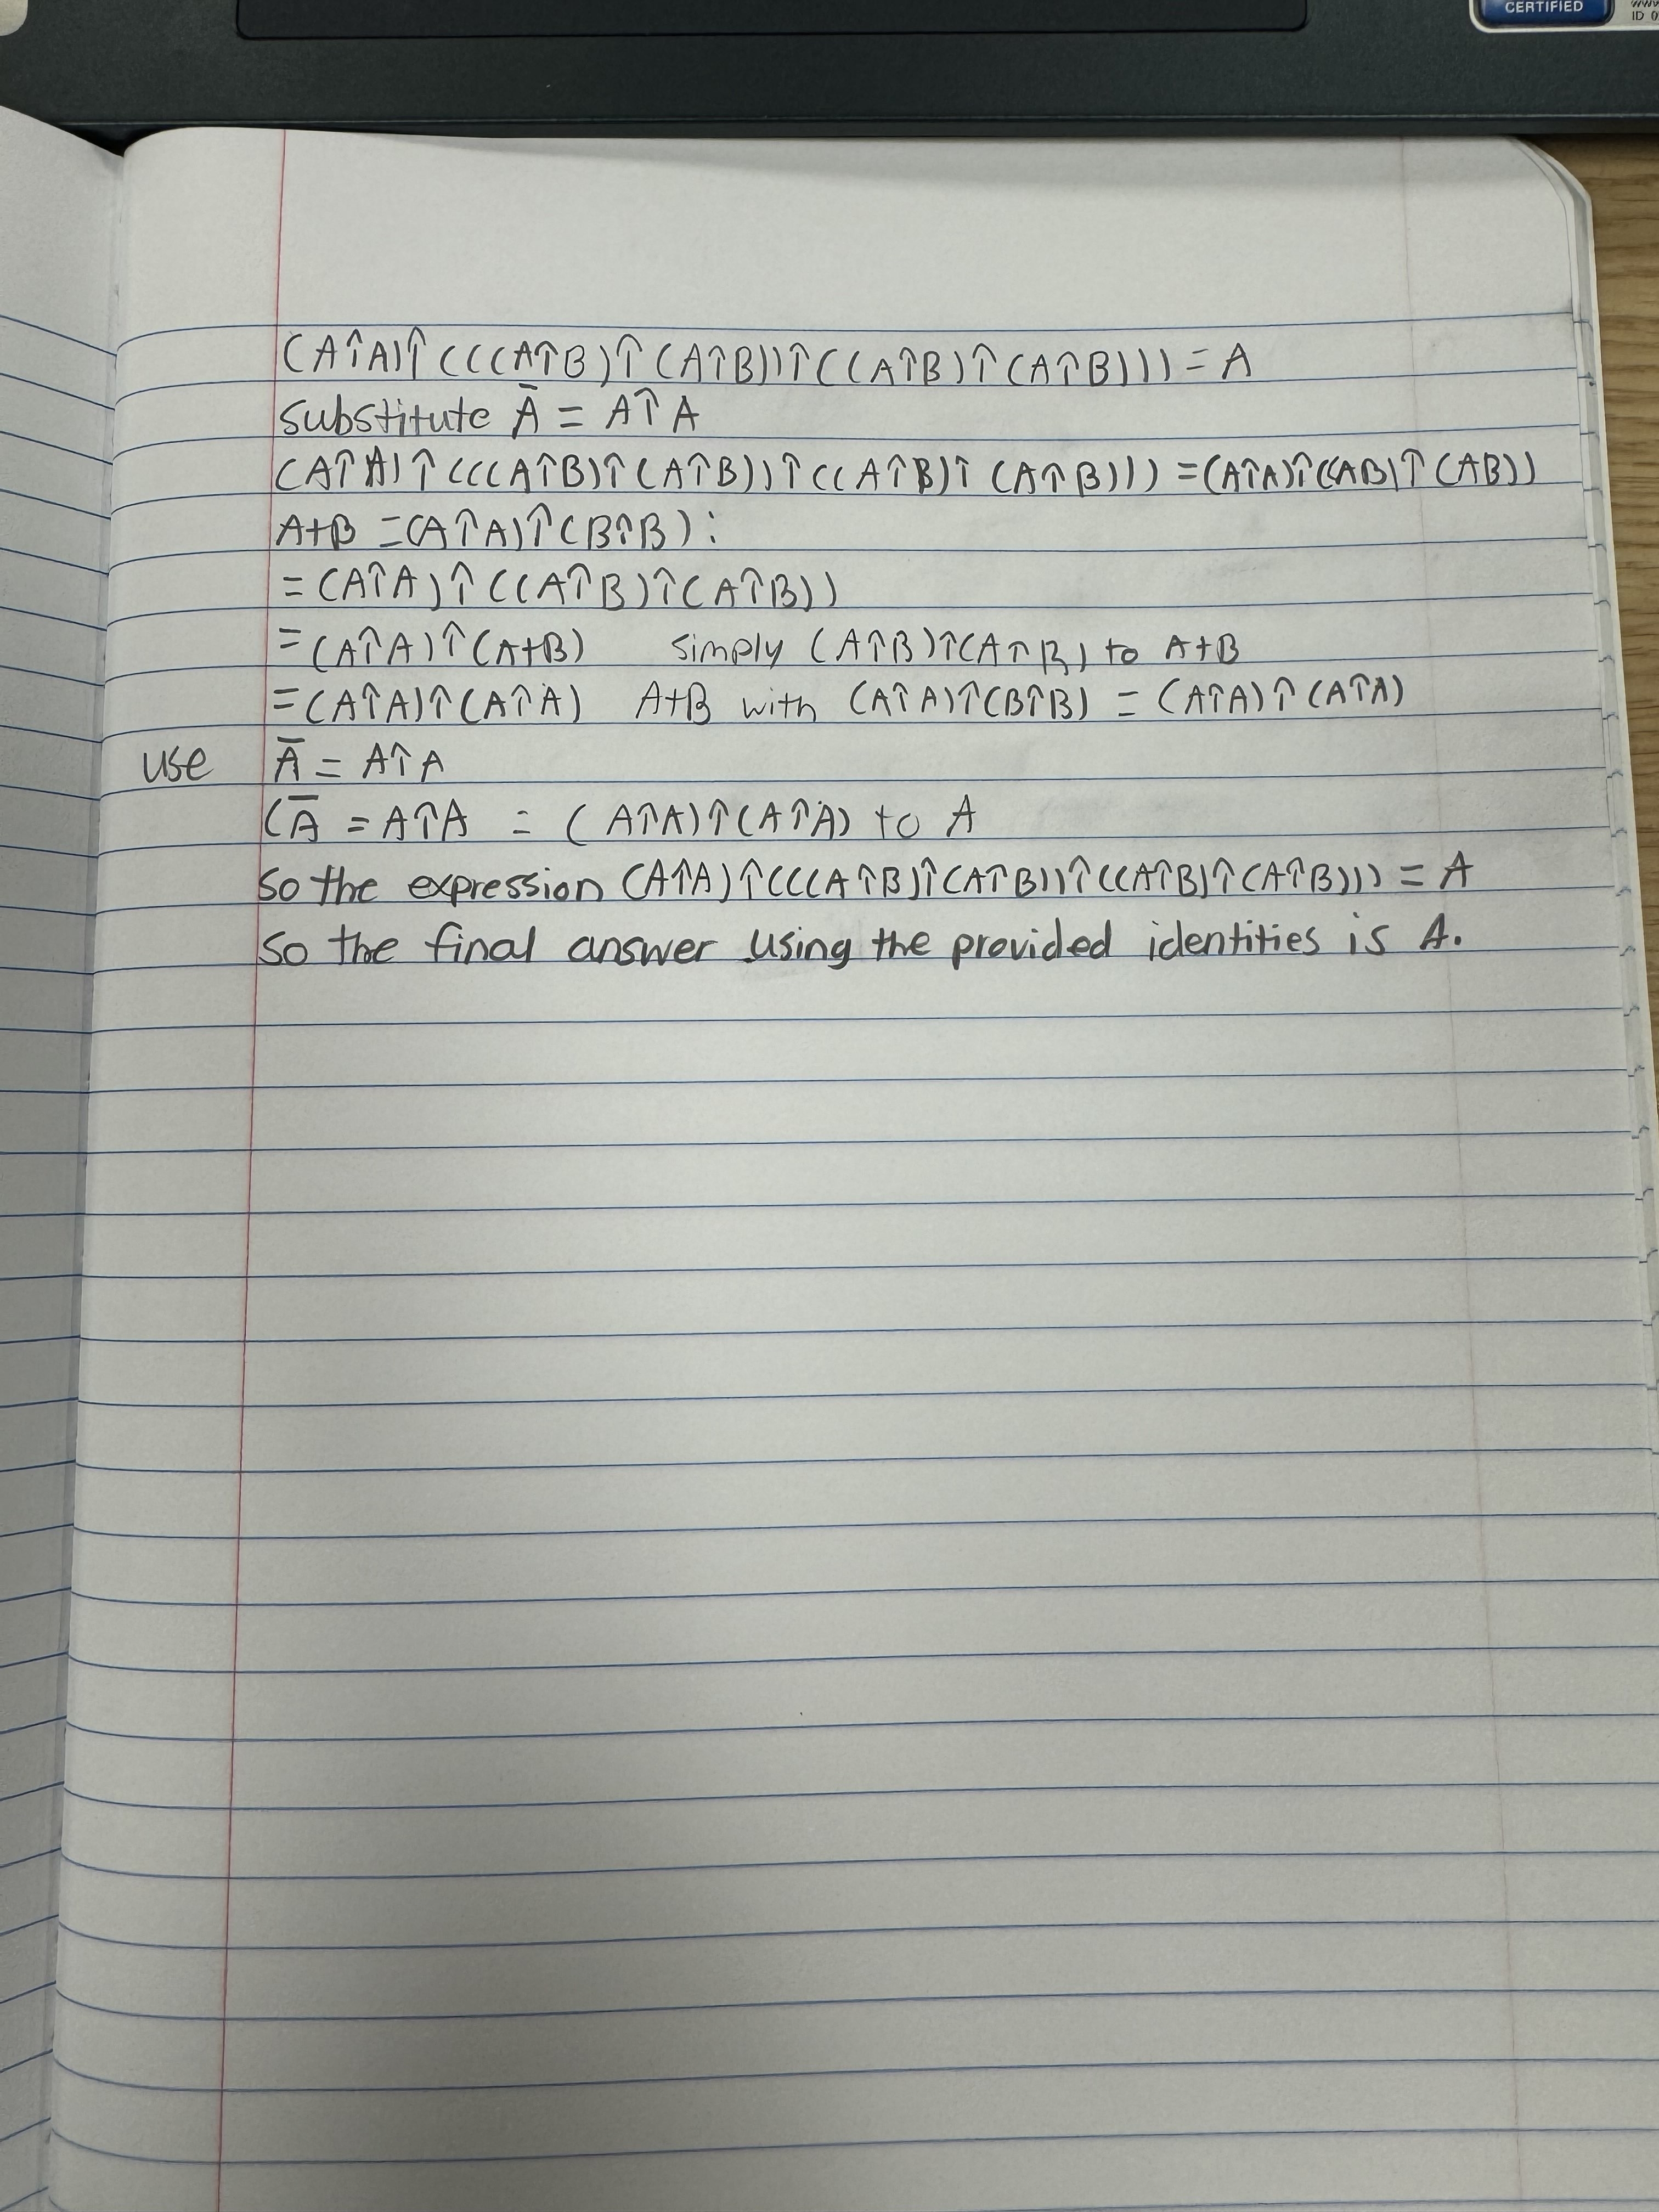 CERTIFIED
WWW
ID 0
(A↑A)↑(((A↑B)↑(A↑B))↑((A↑B)↑(A↑B))) = A
substitute A̅ = A↑A
(A↑A)↑(((A↑B)↑(A↑B))↑((A↑B)↑(A↑B))) = (A↑A)↑((AB)↑(AB))
A+B = (A↑A)↑(B↑B):
= (A↑A)↑((A↑B)↑(A↑B))
= (A↑A)↑(A+B) simply (A↑B)↑(A↑B) to A+B
= (A↑A)↑(A↑A) A+B with (A↑A)↑(B↑B) = (A↑A)↑(A↑A)
use A̅ = A↑A
(A̅ = A↑A = (A↑A)↑(A↑A) to A
so the expression (A↑A)↑(((A↑B)↑(A↑B))↑((A↑B)↑(A↑B))) = A
so the final answer using the provided identities is A.